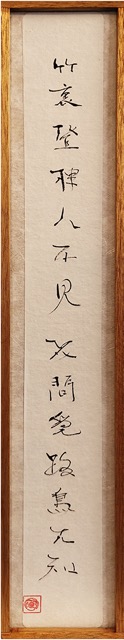 竹裏登樓人不見花間覓路鳥先知